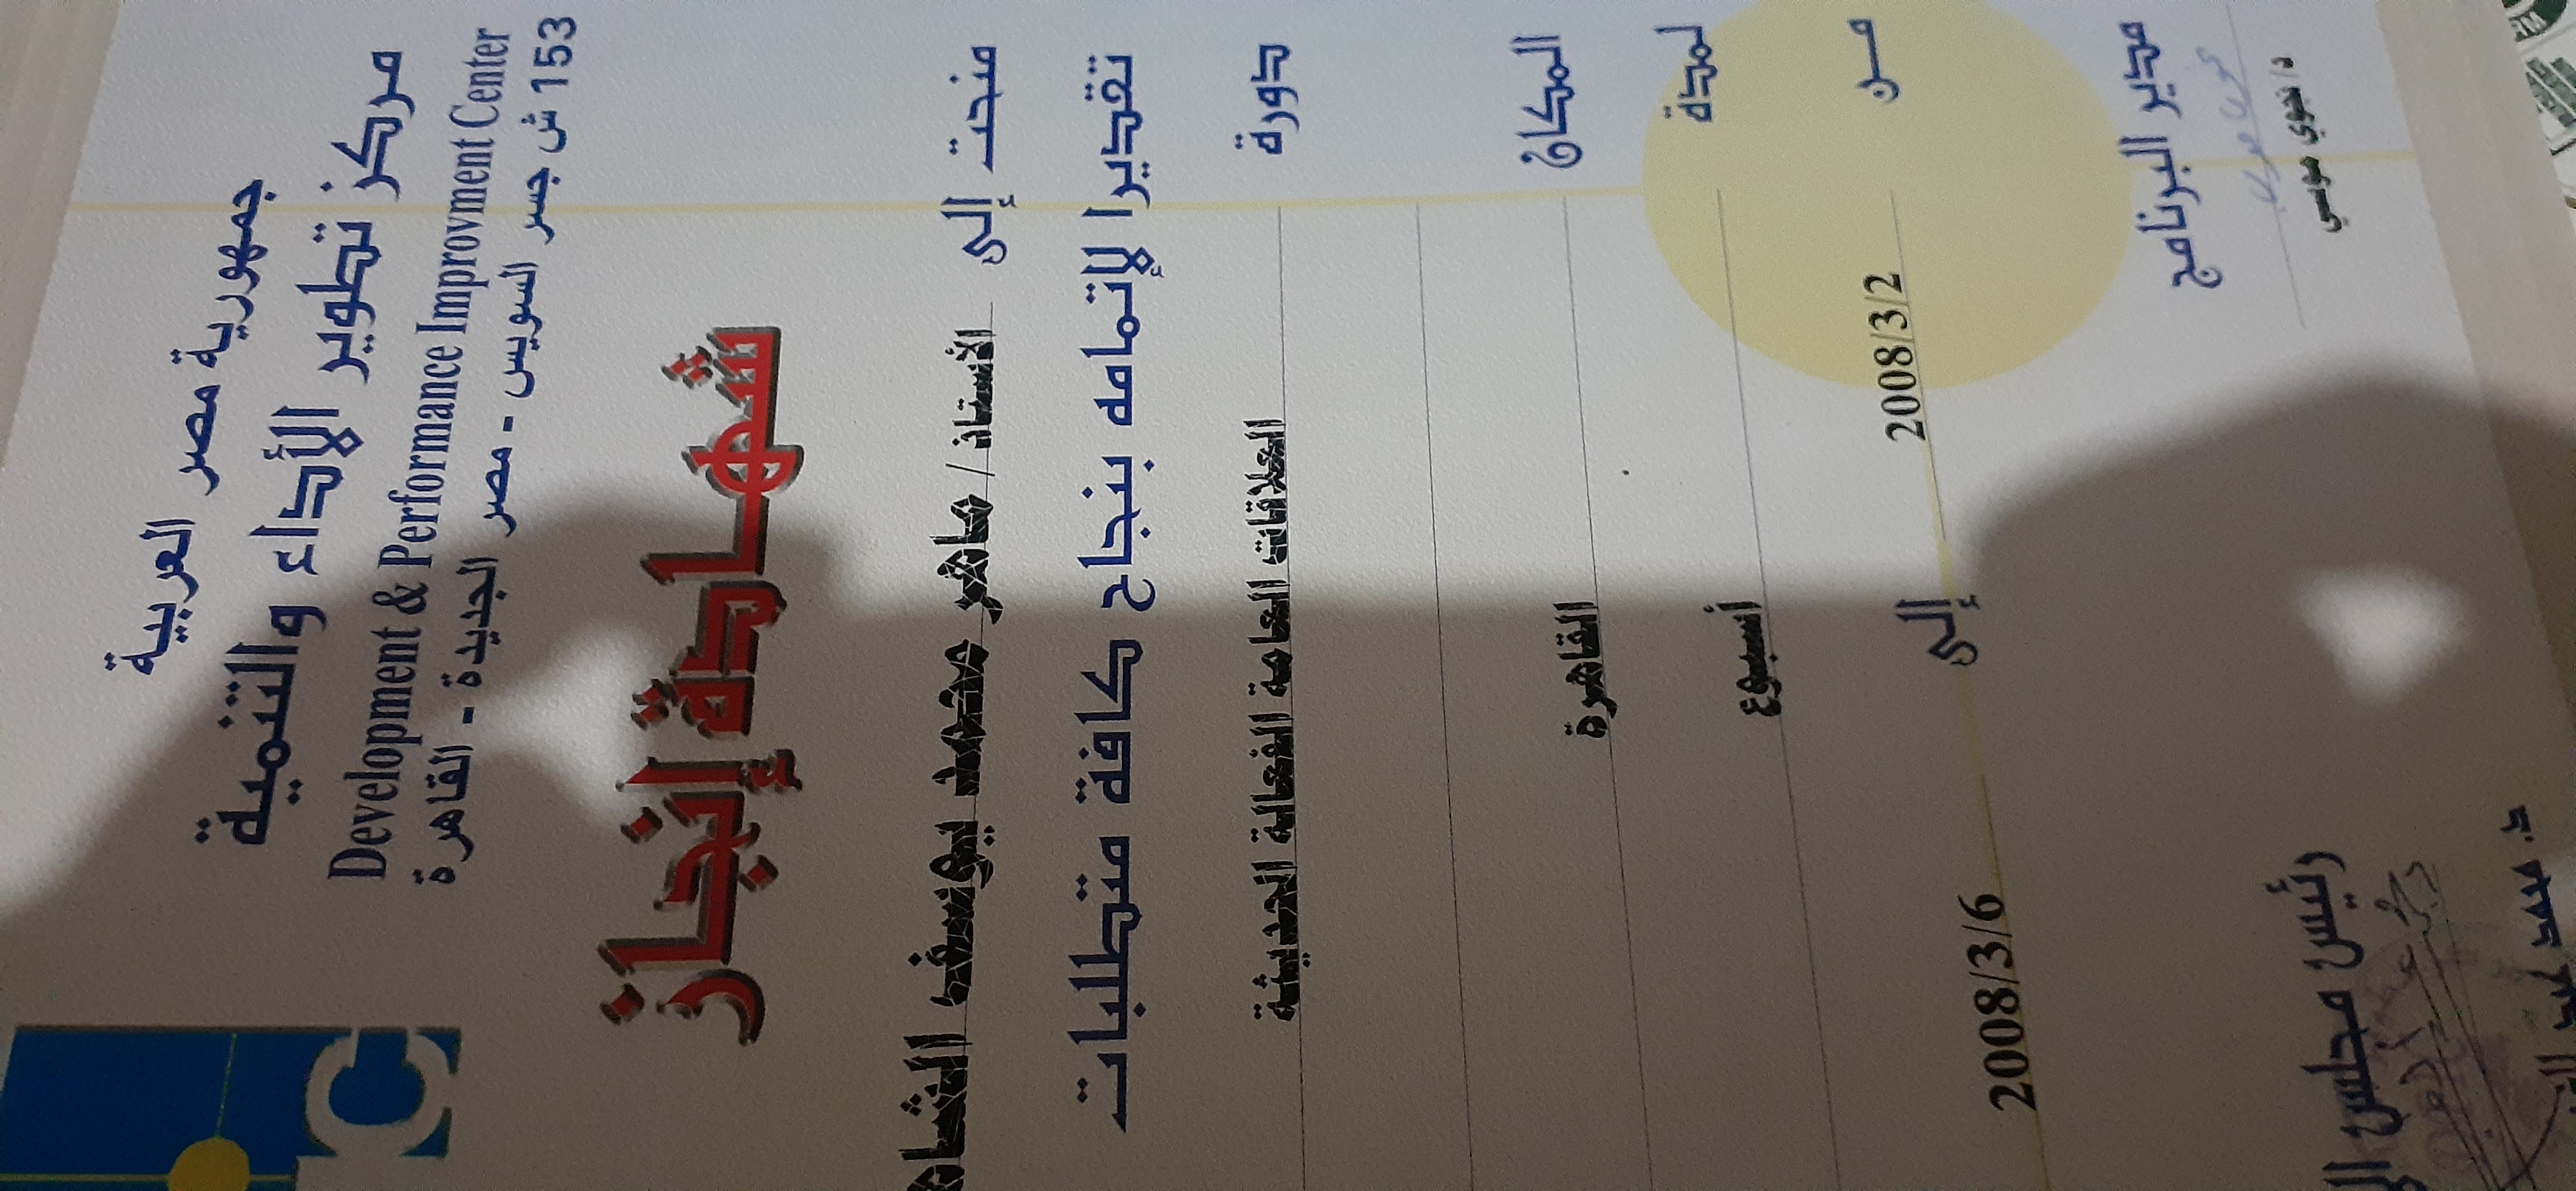 جمهورية مصر العربية
مركز تطوير الأداء والتنمية
Development & Performance Improvment Center
153 ش جسر السويس - مصر الجديدة - القاهرة
شهادة إنجاز
منحت إلى الأستاذ / ماهر محمد يوسف
تقديرا لإتمامه بنجاح كافة متطلبات
دورة العلاقات العامة الفعالة الحديثة
المكان القاهرة
لمدة أسبوع
من 2008/3/2 إلى 2008/3/6
مدير البرنامج
رئيس مجلس
د/ نجوي موسي